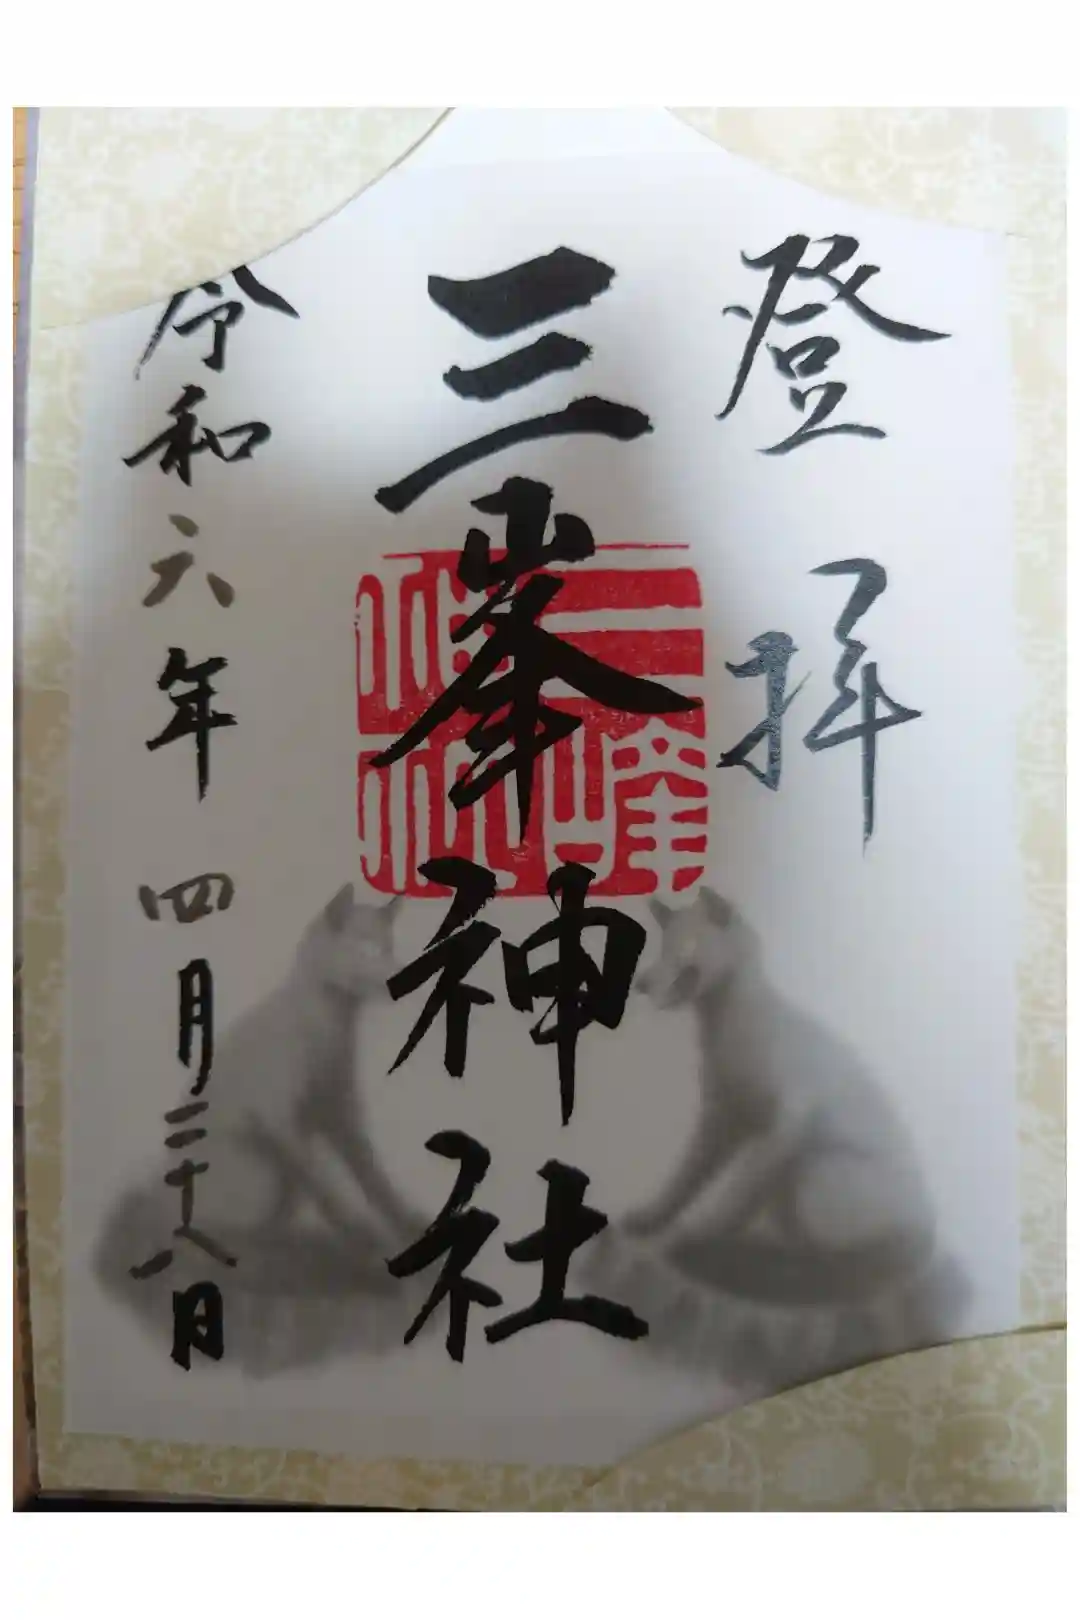 登拝
三峯神社
三峰神社
令和六年四月二十八日